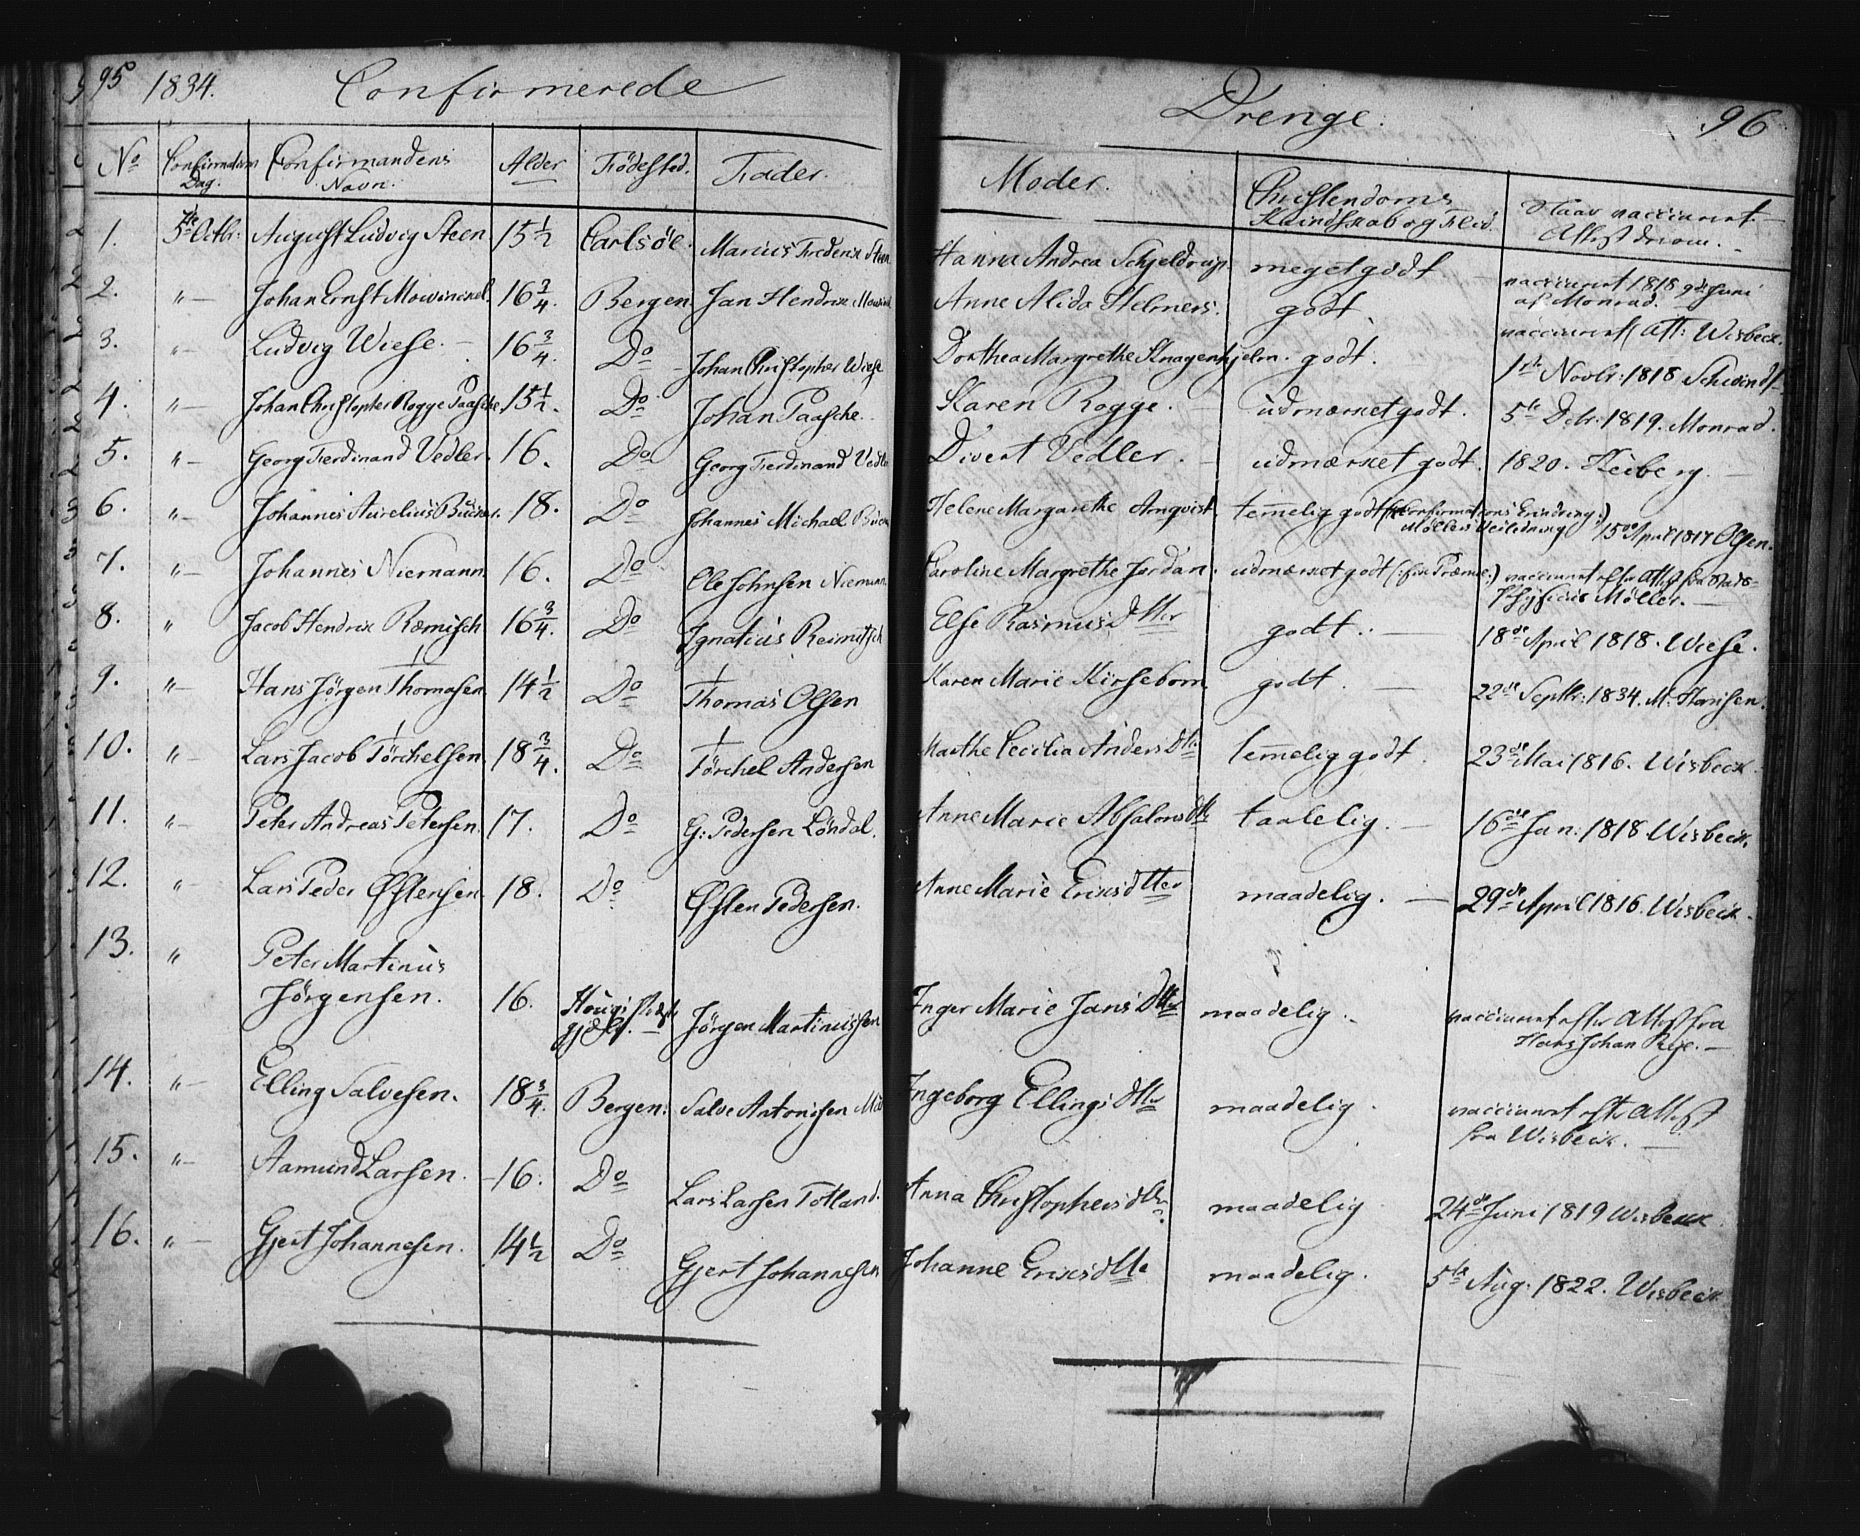 95 1834. Confirmerede Drenge. 96
No Confirmations Dag. Confirmandens Navn. Alder Födested. Fader. Moder. Christendoms Kundskab og Flid. Naar vaccineret. Attest derom.
1. 5te Octbr. August Ludvig Steen 15 1/2 Carlsöe. Marius Frederik Steen Hanna Andrea Schjeldrup meget godt vaccineret 1818 9de Juni af Monrad.
2. " Johan Ernst Mowinckel 16 3/4. Bergen Jan Hendrik Mowinckel Anne Alida Helmers. godt. vaccineret Att: Wisbeck.
3. " Ludvig Wiese. 16 3/4. Do Johan Christopher Wiese Dorthea Margrethe Knagenhjelm. godt. 1ste Novbr. 1818
4. " Johan Christopher Rogge Paasche. 15 1/2. Do Johan Paasche. Karen Rogge. udmærket godt. 5te Octr. 1819. Monrad.
5. " Georg Ferdinand Vedler. 16. Do Georg Ferdinand Vedler Divert Vedler. udmærket godt. 1820. Heiberg.
6. " Johannes Aurelius Bücker. 18. Do Johannes Michael Helene Margarethe Arnqvist temelig godt (Confirmations Erindring:) Möllers Veiledning 15de April 1817 Olsen.
7. " Johannes Niemann. 16. Do Ole Johnsen Niemann Caroline Margrethe Jordan. udmærket godt (: fik Præmie:) vaccineret efter Attest fra Physicus Möller.
8. " Jacob Hendrik Ræmisch 16 3/4. Do Ignatius Reimitsch Else Rasmusdtter godt. 18de April 1818. Wiese.
9. " Hans Jörgen Thomasen 14 1/2 Do Thomas Olsen Karen Marie Kirsebom godt. 22de Septbr. 1834. M. Hansen.
10. " Lars Jacob Törchelsen 18 3/4. Do Törchel Andersen Marthe Cecilia Andersdtr temelig godt. 23de Mai 1816. Wisbeck.
11. " Peter Andreas Petersen. 17. Do G: Pedersen Löndal. Anne Marie Absalonsdtr taalelig. 16de Jan: 1818 Wisbeck.
12. " Lars Peder Østensen 18. Do Østen Pedersen. Anne Marie Eriksdtter maadelig. 29de April 1816. Wisbeck.
13. " Peter Martinus
Jörgensen. 16. Hougs Præste gjeld. Jörgen Martinussen Inger Marie Jansdtter maadelig. vaccineret efter Attest fra Hans Johan Rye.
14. " Elling Salvesen. 18 3/4. Bergen. Salve Antonisen Ingeborg Ellingsdtter maadelig. vaccineret efter Attest fra Wisbeck.
15. " Aamund Larsen. 16. Do Lars Larsen Totland. Anna Christophersdtter. maadelig 24de Juni 1819 Wisbeck
16. " Gjert Johannesen. 14 1/2 Do Gjert Johannesen Johanne Eriksdtte maadelig. 5te Aug. 1822. Wisbeck